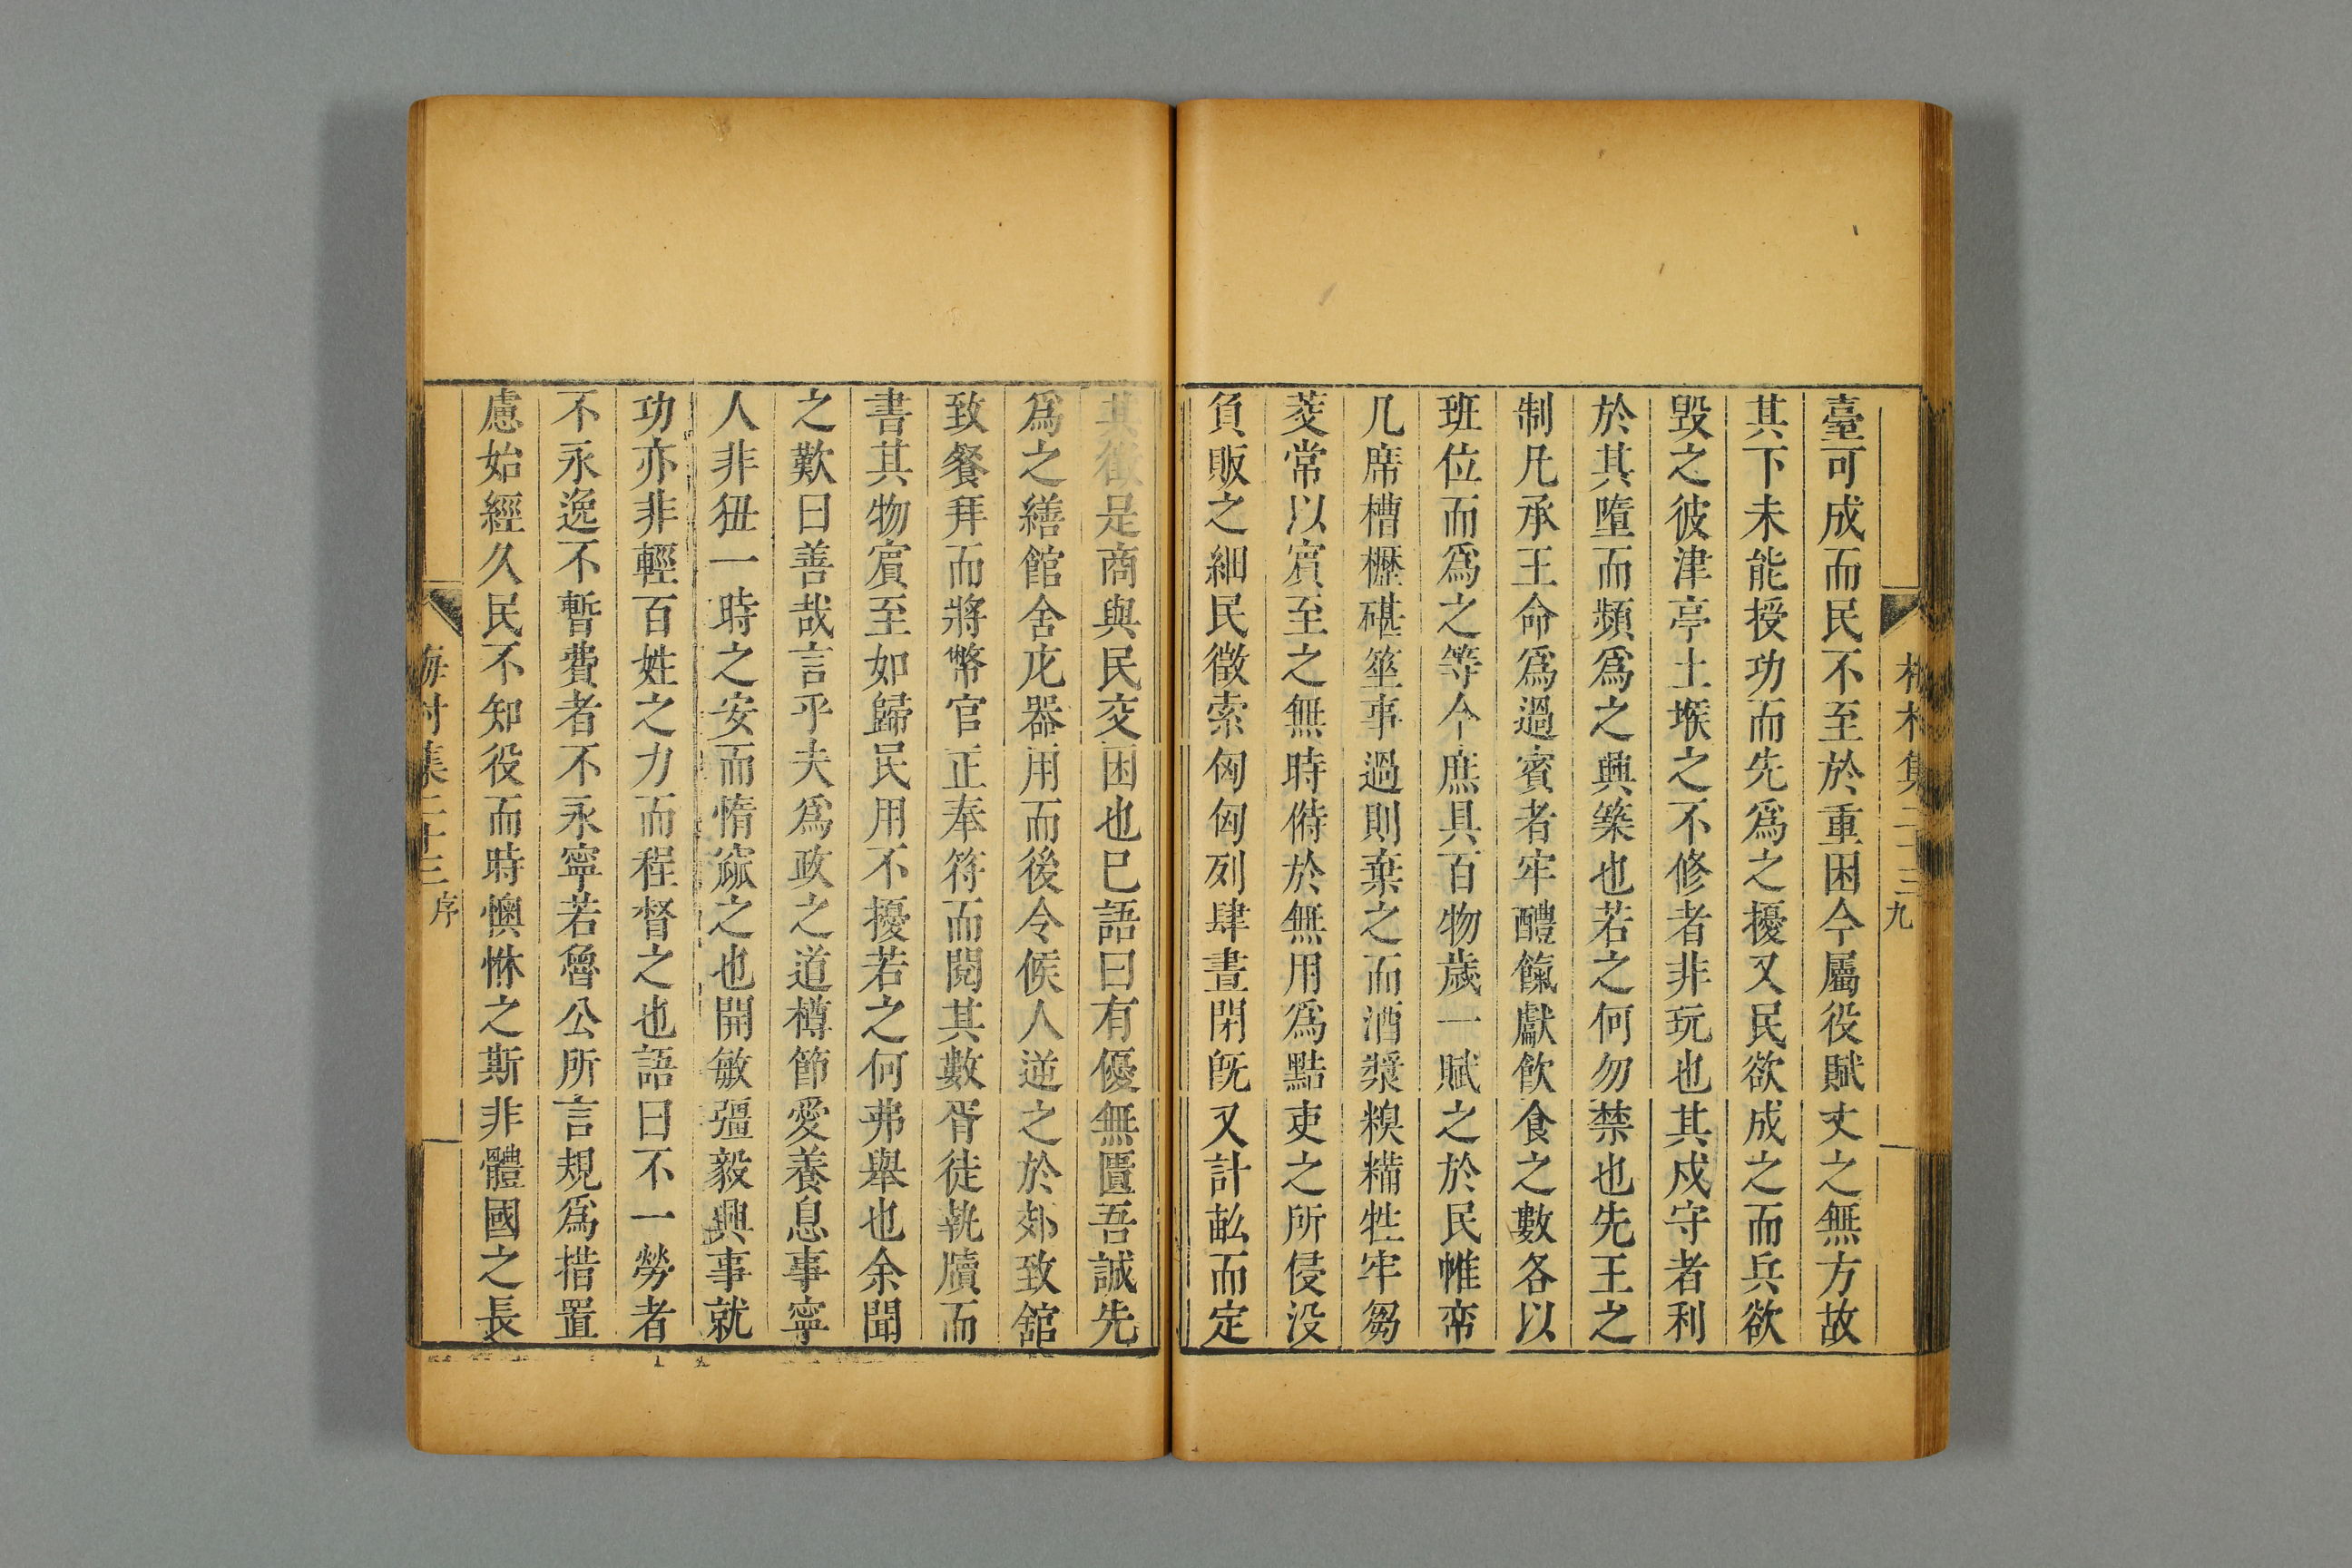 梅村集二十三
九
臺可成而民不至於重困今屬役賦丈之無方故
其下未能授功而先爲之擾又民欲成之而兵欲
毀之彼津亭土堠之不修者非玩也其戍守者利
於其墮而頻爲之興築也若之何勿禁也先王之
制凡承王命爲過賓者牢醴餼獻飲食之數各以
班位而爲之等今庶具百物歲一賦之於民帷帟
几席槽櫪碪莝事過則棄之而酒漿糗糒牲牢芻
茭常以賓至之無時偫於無用爲黠吏之所侵没
負販之細民徵索匈匈列肆晝閉旣又計畝而定
其徵是商與民交困也已語曰有優無匱吾誠先
爲之繕館舍庀器用而後令候人逆之於郊致舘
致餐拜而將幣官正奉符而閱其數胥徒執牘而
書其物賓至如歸民用不擾若之何弗舉也余聞
之歎曰善哉言乎夫爲政之道樽節愛養息事寧
人非狃一時之安而惰窳之也開敏彊毅興事就
功亦非輕百姓之力而程督之也語曰不一勞者
不永逸不暫費者不永寧若魯公所言規爲措置
慮始經久民不知役而時懊咻之斯非體國之長
梅村集二十三
序